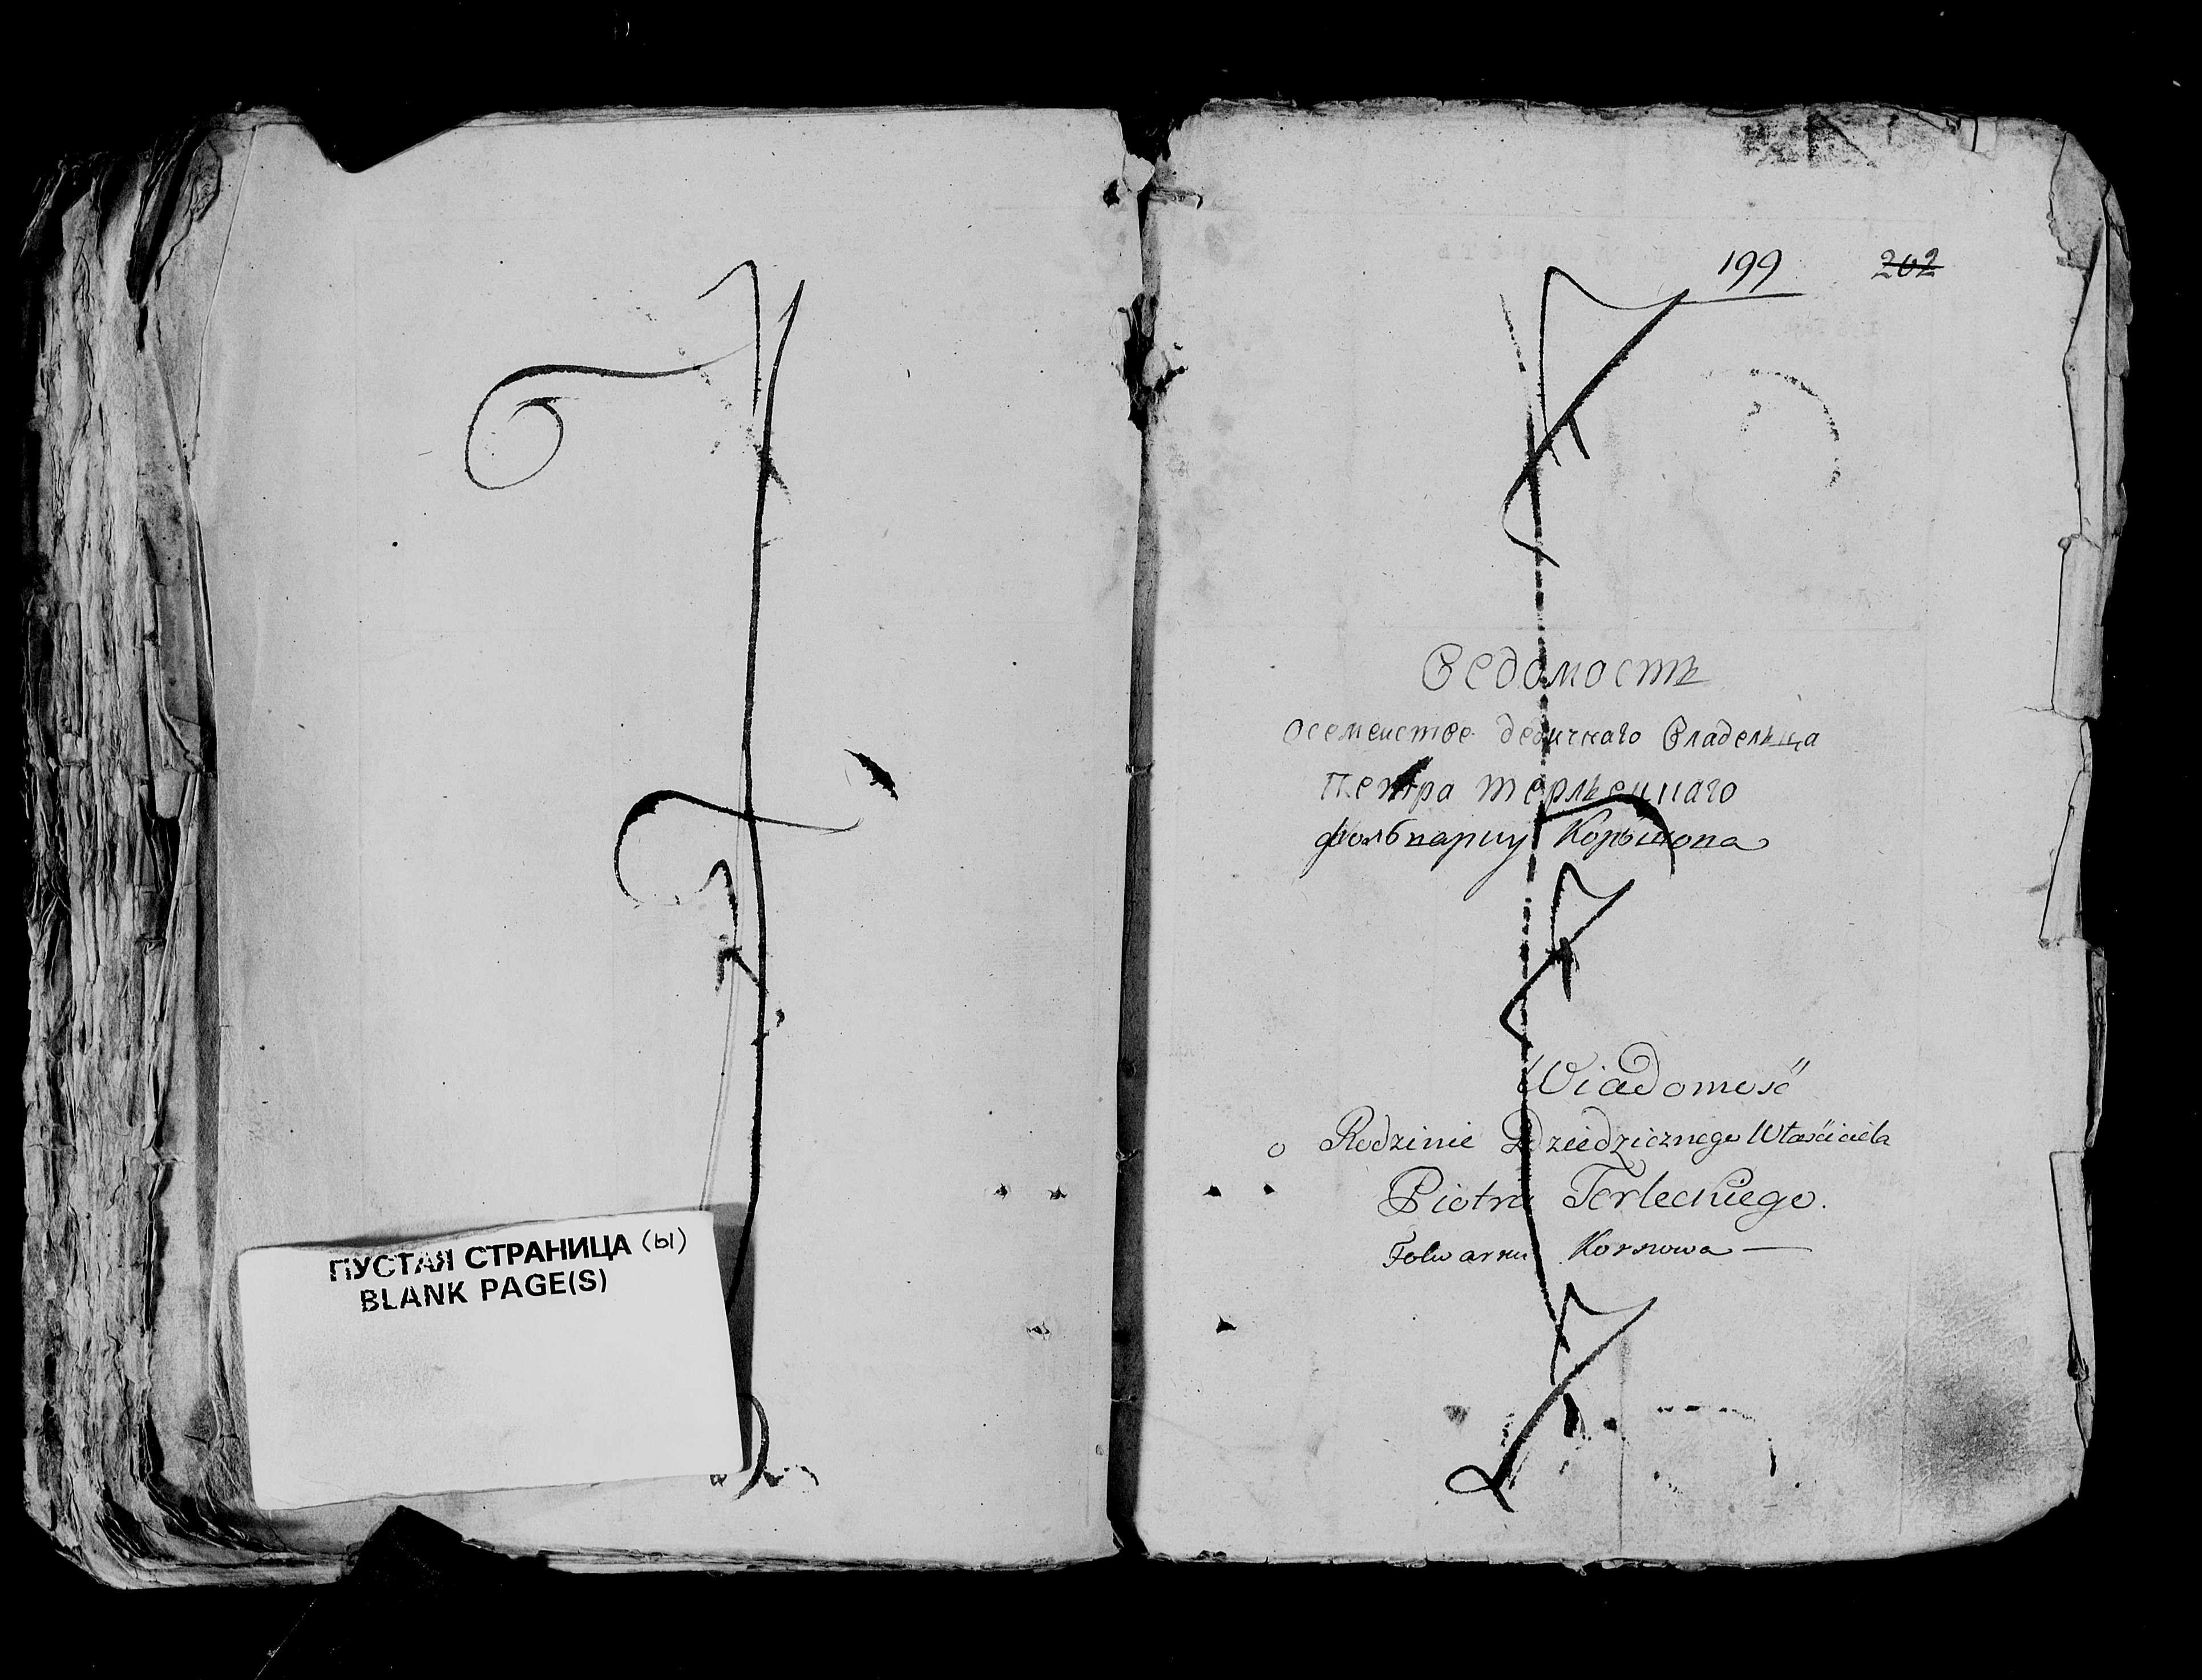 ПУСТАЯ СТРАНИЦА (ы)
BLANK PAGE(S)
199 202
Ведомость
осемействе дедичнаго владельца
Петра терлецкаго
Wiadomość
o Rodzinie Dziedzicznego Właściciela
Piotra Terleckiego.
Folwarku